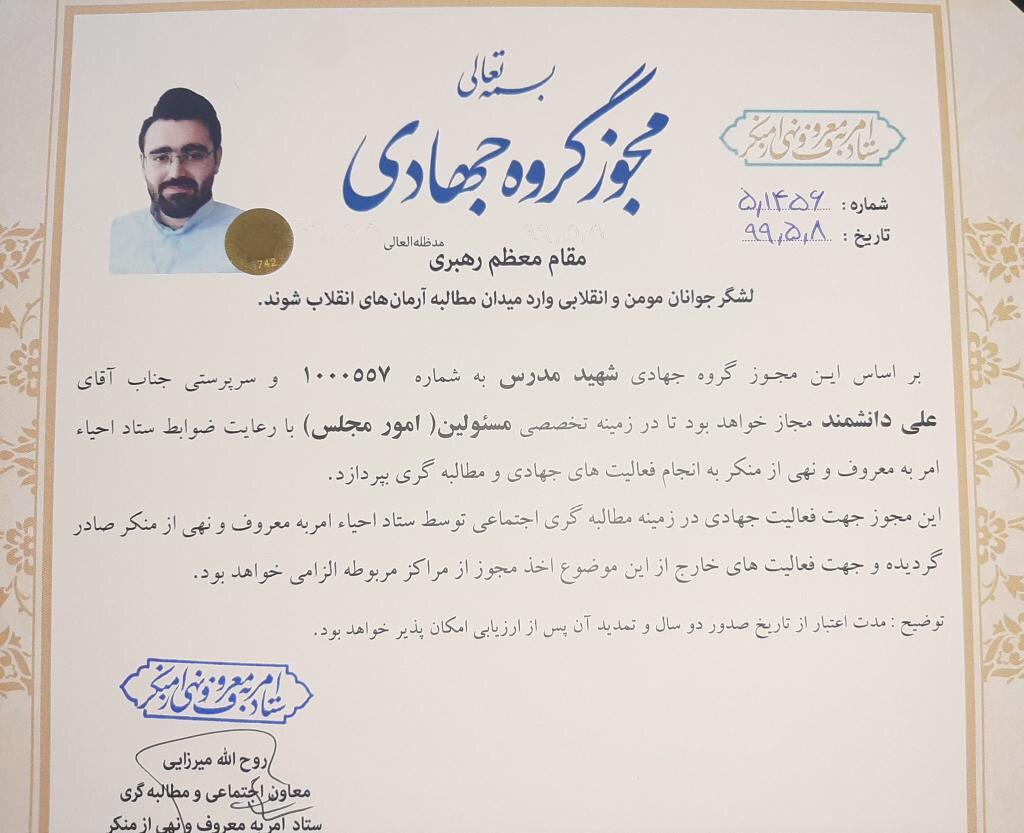 بسمه تعالی
مجوز گروه جهادی
ستاد امر به معروف و نهی از منکر
شماره : ۵,۱۴۵۶
تاریخ : ۹۹,۵,۸
742
مقام معظم رهبری مدظله‌العالی
لشگر جوانان مومن و انقلابی وارد میدان مطالبه آرمان‌های انقلاب شوند.
بر اساس این مجوز گروه جهادی شهید مدرس به شماره ۱۰۰۰۵۵۷ و سرپرستی جناب آقای
علی دانشمند مجاز خواهد بود تا در زمینه تخصصی مسئولین( امور مجلس) با رعایت ضوابط ستاد احیاء
امر به معروف و نهی از منکر به انجام فعالیت های جهادی و مطالبه گری بپردازد.
این مجوز جهت فعالیت جهادی در زمینه مطالبه گری اجتماعی توسط ستاد احیاء امربه معروف و نهی از منکر صادر
گردیده و جهت فعالیت های خارج از این موضوع اخذ مجوز از مراکز مربوطه الزامی خواهد بود.
توضیح : مدت اعتبار از تاریخ صدور دو سال و تمدید آن پس از ارزیابی امکان پذیر خواهد بود.
ستاد امر به معروف و نهی از منکر
روح الله میرزایی
معاون اجتماعی و مطالبه گری
ستاد امربه معروف و نهی از منکر